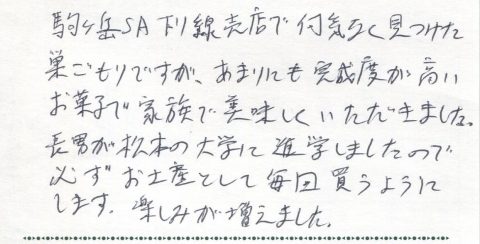 駒ヶ岳SA下り線売店で何気なく見つけた
巣ごもりですが、あまりにも完成度が高い
お菓子で家族で美味しくいただきました。
長男が松本の大学に進学しましたので
必ずお土産として毎回買うように
します。楽しみが増えました。